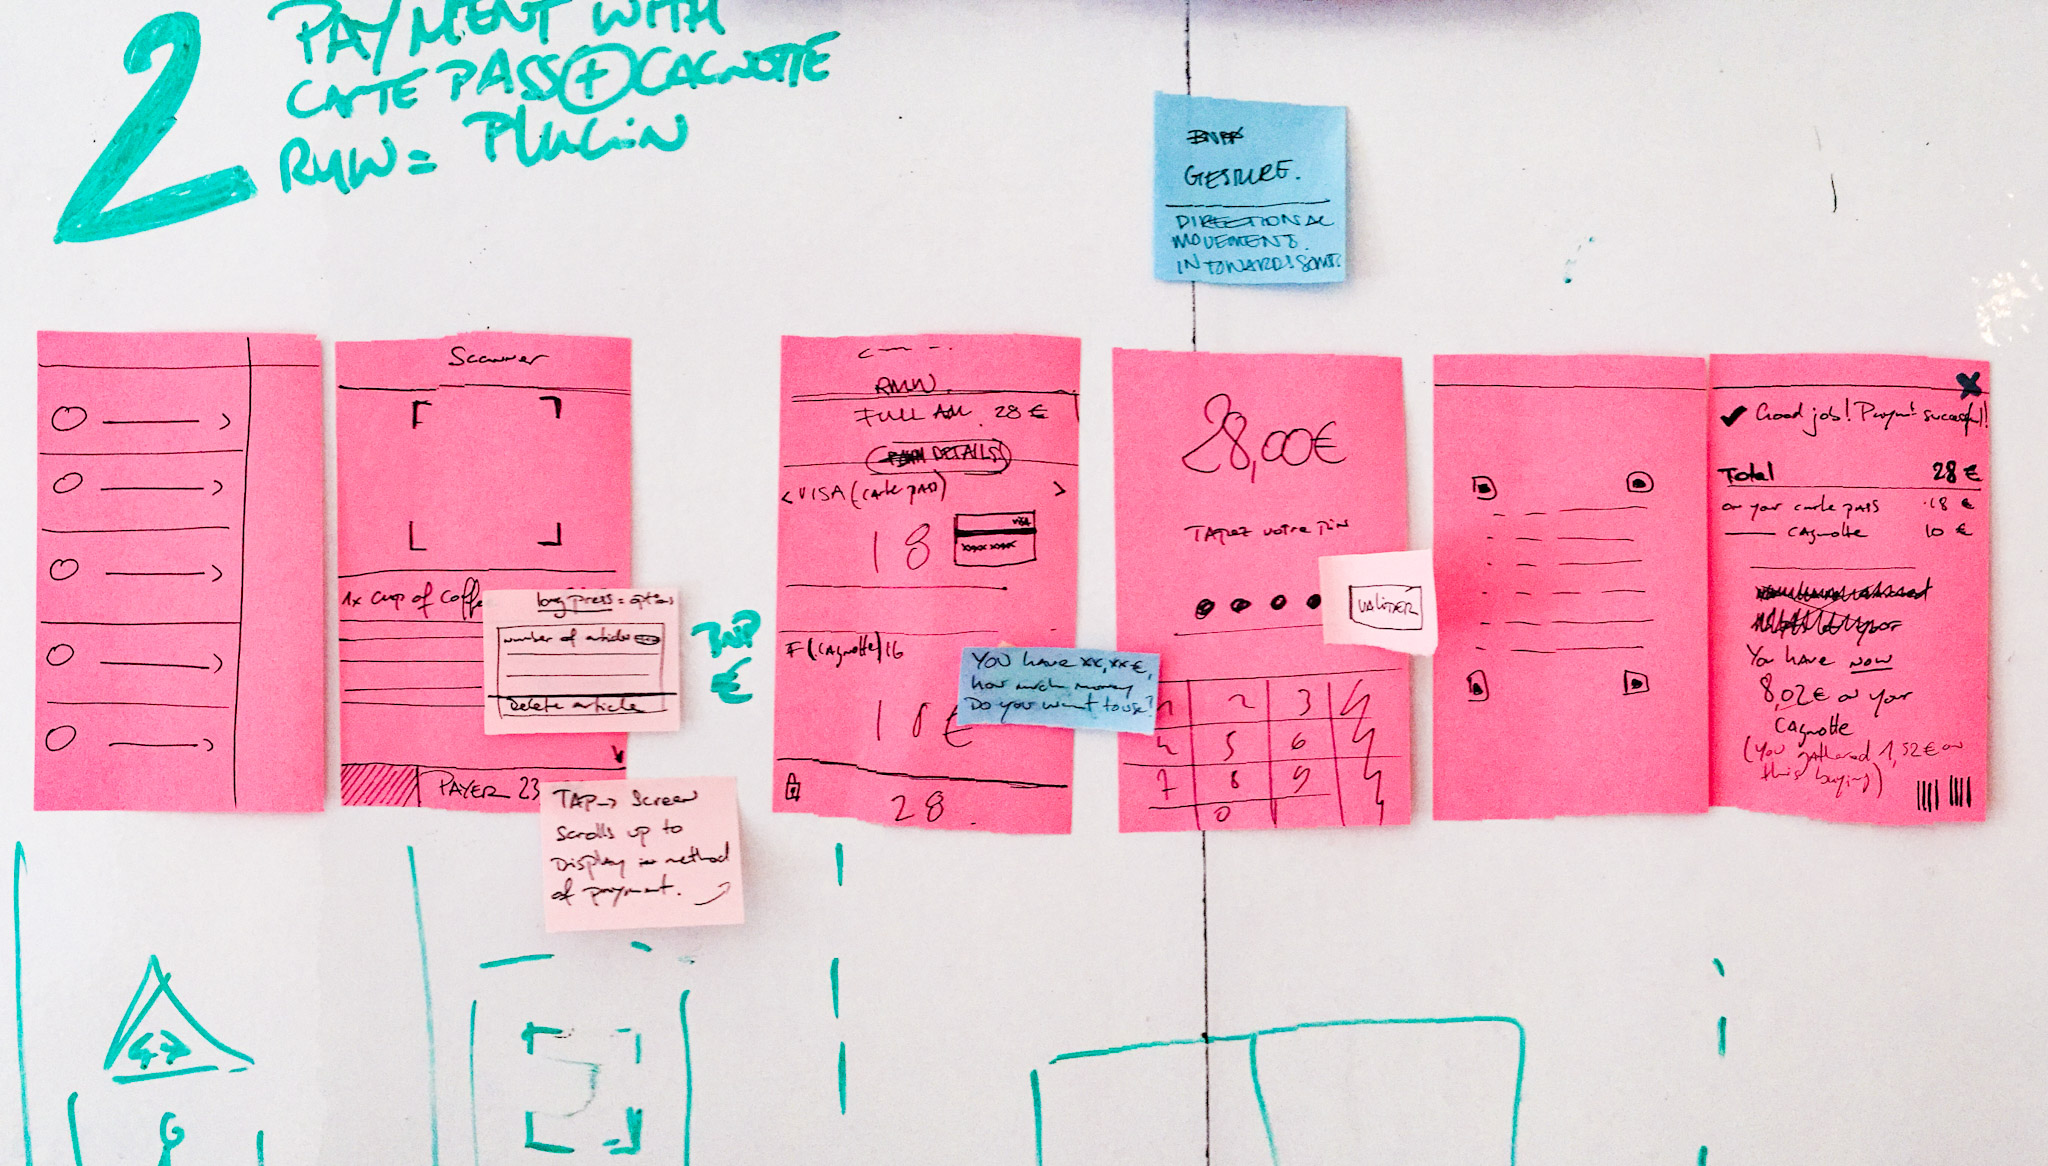 2
PAYMENT WITH
CARTE PASS + CAGNOTTE
RMW = PLUGIN
GESTURE.
DIRECTIONAL
MOVEMENTS.
IN TOWARDS
Scanner
1x cup of coffe
long press = options
number of articles
Delete article
PAYER 23
TAP → Screen
scrolls up to
Display in method
of payment.
€
RMW.
FULL 28 €
DETAILS
< VISA (carte pass) >
18
VISA
xxxx xxxx
(cagnotte) 16
10 €
28
YOU HAVE xx,xx €,
how much money
Do you want to use?
28,00€
TAPEZ votre pin
VALIDER
1 2 3
4 5 6
7 8 9
0
X
✓ Good job! Payment successful!
Total 28 €
on your carte pass 18 €
—— cagnotte 10 €
You have now
8,02€ on your
CAgnotte
(You gathered 1,52€ on
this buying)